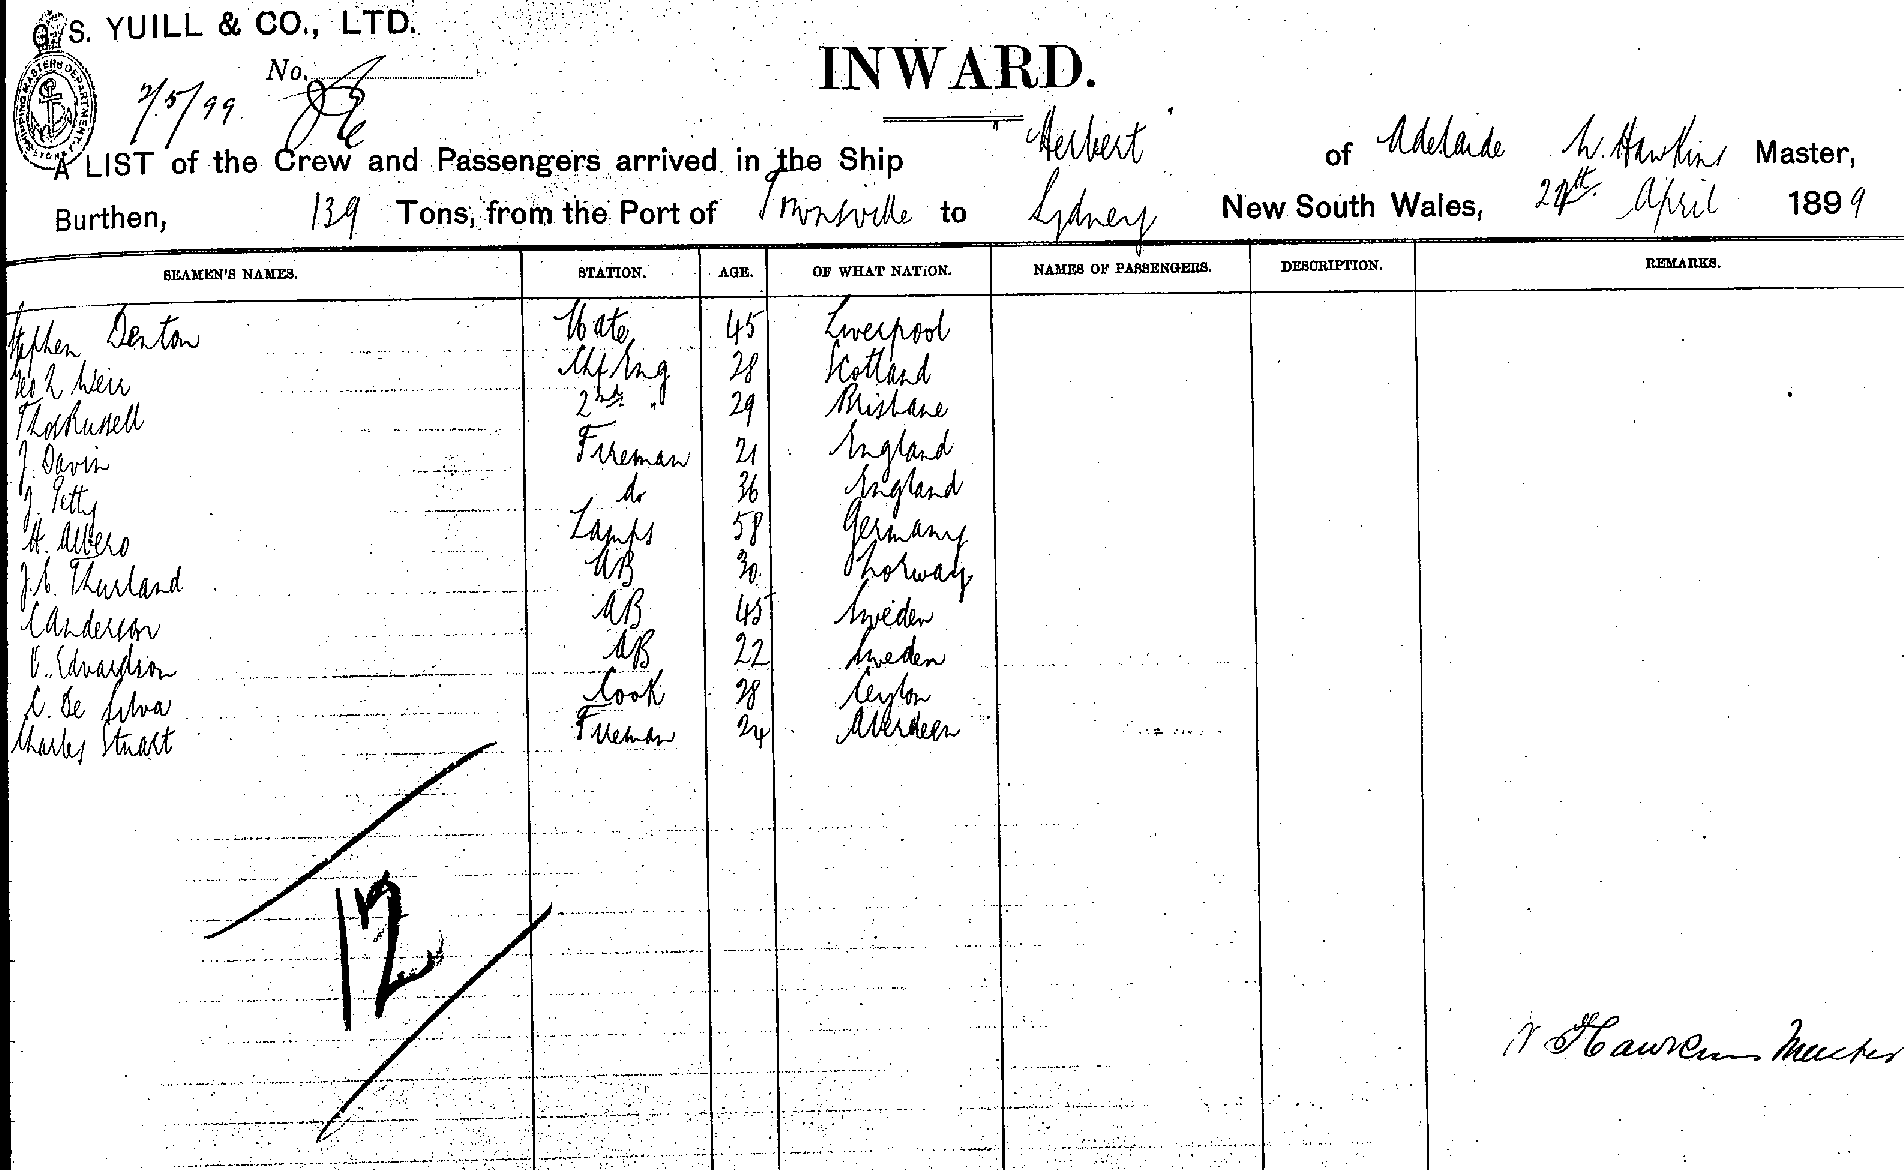 G. S. YUILL & CO., LTD.
No.
INWARD.
2/5/99
SHIPPING MASTERS DEPARTMENT
A LIST of the Crew and Passengers arrived in the Ship "Herbert of Adelaide W. Hawkins Master,
Burthen, 139 Tons, from the Port of Townsville to Sydney New South Wales, April 1899
SEAMEN'S NAMES. STATION. AGE. OF WHAT NATION. NAMES OF PASSENGERS. DESCRIPTION. REMARKS.
Stephen Denton Mate 45 Liverpool
Weir Chf Eng 28 Scotland
Thos Russell 2nd " 29 Brisbane
J. Davin Fireman 21 England
J. Petty do 36 England
H. Albero Lamps 58 Germany
Thurland AB 30 Norway
C Anderson AB 45 Sweden
Edvardson AB 22 Sweden
C. De Silva Cook 28 Ceylon
Charles Stuart Fireman 24 Aberdeen
12
W Hawkins Master